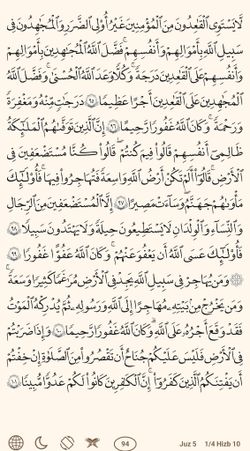 لَّا يَسْتَوِى ٱلْقَـٰعِدُونَ مِنَ ٱلْمُؤْمِنِينَ غَيْرُ أُو۟لِى ٱلضَّرَرِ وَٱلْمُجَـٰهِدُونَ فِى
سَبِيلِ ٱللَّهِ بِأَمْوَٰلِهِمْ وَأَنفُسِهِمْ ۚ فَضَّلَ ٱللَّهُ ٱلْمُجَـٰهِدِينَ بِأَمْوَٰلِهِمْ
وَأَنفُسِهِمْ عَلَى ٱلْقَـٰعِدِينَ دَرَجَةً ۚ وَكُلًّا وَعَدَ ٱللَّهُ ٱلْحُسْنَىٰ ۚ وَفَضَّلَ ٱللَّهُ
ٱلْمُجَـٰهِدِينَ عَلَى ٱلْقَـٰعِدِينَ أَجْرًا عَظِيمًا ٩٥ دَرَجَـٰتٍ مِّنْهُ وَمَغْفِرَةً
وَرَحْمَةً ۚ وَكَانَ ٱللَّهُ غَفُورًا رَّحِيمًا ٩٦ إِنَّ ٱلَّذِينَ تَوَفَّىٰهُمُ ٱلْمَلَـٰٓئِكَةُ
ظَالِمِىٓ أَنفُسِهِمْ قَالُوا۟ فِيمَ كُنتُمْ ۖ قَالُوا۟ كُنَّا مُسْتَضْعَفِينَ فِى
ٱلْأَرْضِ ۚ قَالُوٓا۟ أَلَمْ تَكُنْ أَرْضُ ٱللَّهِ وَٰسِعَةً فَتُهَاجِرُوا۟ فِيهَا ۚ فَأُو۟لَـٰٓئِكَ
مَأْوَىٰهُمْ جَهَنَّمُ ۖ وَسَآءَتْ مَصِيرًا ٩٧ إِلَّا ٱلْمُسْتَضْعَفِينَ مِنَ ٱلرِّجَالِ
وَٱلنِّسَآءِ وَٱلْوِلْدَٰنِ لَا يَسْتَطِيعُونَ حِيلَةً وَلَا يَهْتَدُونَ سَبِيلًا ٩٨
فَأُو۟لَـٰٓئِكَ عَسَى ٱللَّهُ أَن يَعْفُوَ عَنْهُمْ ۚ وَكَانَ ٱللَّهُ عَفُوًّا غَفُورًا ٩٩
۞ وَمَن يُهَاجِرْ فِى سَبِيلِ ٱللَّهِ يَجِدْ فِى ٱلْأَرْضِ مُرَٰغَمًا كَثِيرًا وَسَعَةً ۚ
وَمَن يَخْرُجْ مِنۢ بَيْتِهِۦ مُهَاجِرًا إِلَى ٱللَّهِ وَرَسُولِهِۦ ثُمَّ يُدْرِكْهُ ٱلْمَوْتُ
فَقَدْ وَقَعَ أَجْرُهُۥ عَلَى ٱللَّهِ ۗ وَكَانَ ٱللَّهُ غَفُورًا رَّحِيمًا ١٠٠ وَإِذَا ضَرَبْتُمْ
فِى ٱلْأَرْضِ فَلَيْسَ عَلَيْكُمْ جُنَاحٌ أَن تَقْصُرُوا۟ مِنَ ٱلصَّلَوٰةِ إِنْ خِفْتُمْ
أَن يَفْتِنَكُمُ ٱلَّذِينَ كَفَرُوٓا۟ ۚ إِنَّ ٱلْكَـٰفِرِينَ كَانُوا۟ لَكُمْ عَدُوًّا مُّبِينًا ١٠١
94 Juz 5 1/4 Hizb 10